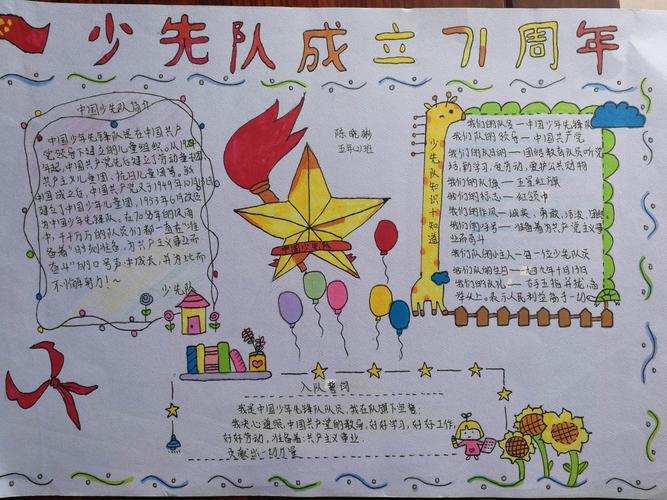 少先队成立71周年
中国少先队简介
中国少年先锋队是在中国共产
党领导下建立的儿童组织。从19
年起,中国共产党先后建立了劳动童子团
共产主义儿童团、抗日儿童团等。新
中国成立后,中国共产党又于1949年10月13日
建立了中国少年儿童团,1953年6月改名
为中国少年先锋队。在70多年的风雨
中,千千万万的队员们都一直在“准
备着”“时刻准备,为共产主义事业而
奋斗”的口号声中成长,并为此而
不懈努力!~
少先队
陈晓彬
五年(2)班
中国少先队
少先队知识十知道
我们的队名—中国少年先锋队
我们的领导—中国共产党
我们的队目的—团结教育队员听党
话,勤学习,爱劳动,爱护公共财物
我们的队旗—五星红旗
我们的标志—红领巾
我们的作风—诚实、勇敢、活泼、团结
我们的呼号—准备着为共产主义事
业而奋斗
我们队的小主人—每一位少先队员
我们队的生日—一九四九年十月十三日
我们的队礼—右手五指并拢,高
举头上。表示人民利益高于一切
入队誓词
我是中国少年先锋队队员,我在队旗下宣誓:
我决心遵照中国共产党的教导,好好学习,好好工作,
好好劳动,准备着:为共产主义事业,
贡献出一切力量